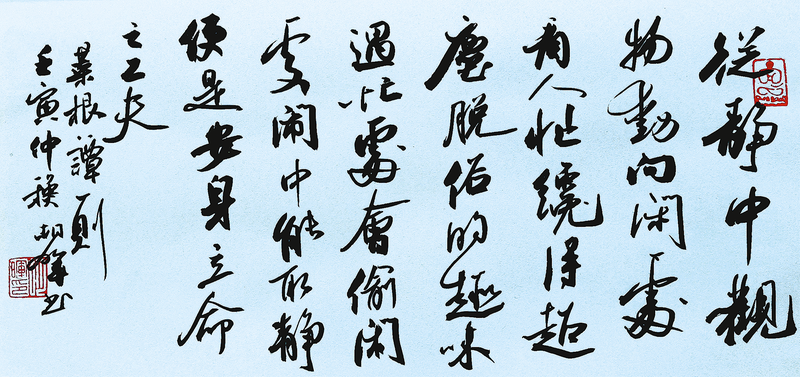 從静中觀
物動向闲處
看人忙纔得超
塵脱俗的趣味
遇忙處會偷闲
处闹中能取静
便是安身立命
之工夫
菜根譚一則
壬寅仲秋 书